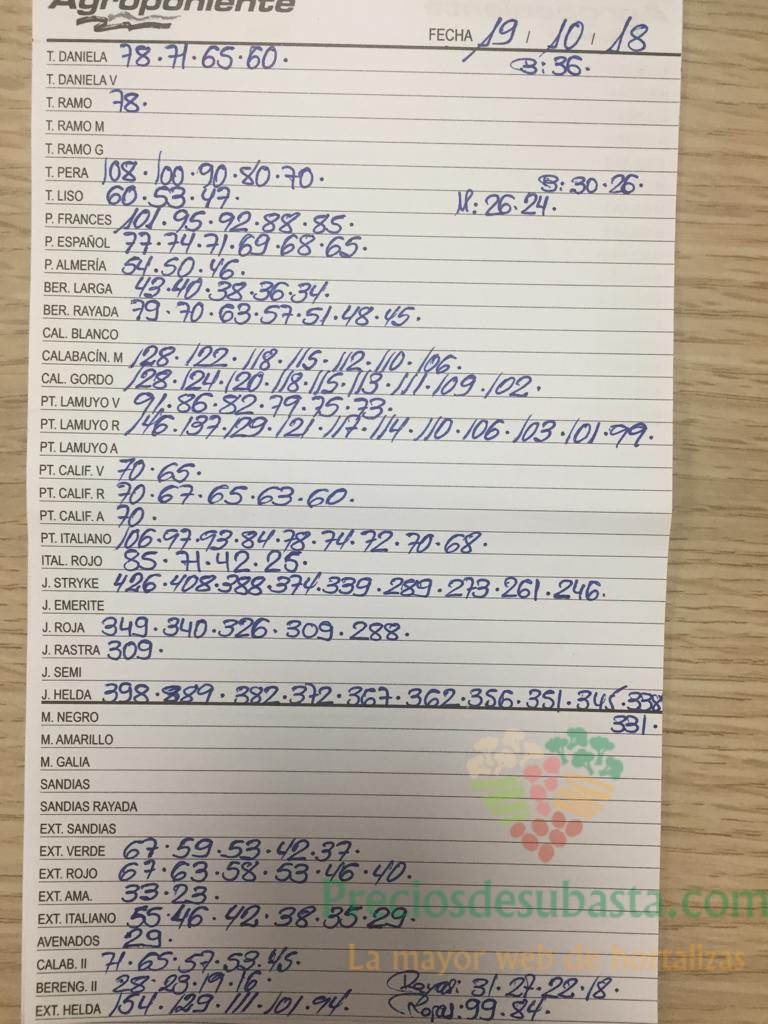 Agroponiente
FECHA 19 / 10 / 18
T. DANIELA 78·71·65·60· B: 36·
T. DANIELA V
T. RAMO 78·
T. RAMO M
T. RAMO G
T. PERA 108·100·90·80·70· B: 30·26·
T. LISO 60·53·47· M: 26·24·
P. FRANCES 101·95·92·88·85·
P. ESPAÑOL 77·74·71·69·68·65·
P. ALMERÍA 54·50·46·
BER. LARGA 43·40·38·36·34·
BER. RAYADA 79·70·63·57·51·48·45·
CAL. BLANCO
CALABACÍN. M 128·122·118·115·112·110·106·
CAL. GORDO 128·124·120·118·115·113·111·109·102·
PT. LAMUYO V 91·86·82·79·75·73·
PT. LAMUYO R 146·137·129·121·117·114·110·106·103·101·99·
PT. LAMUYO A
PT. CALIF. V 70·65·
PT. CALIF. R 70·67·65·63·60·
PT. CALIF. A 70·
PT. ITALIANO 106·97·93·84·78·74·72·70·68·
ITAL. ROJO 85·71·42·25·
J. STRYKE 426·408·388·374·339·289·273·261·246·
J. EMERITE
J. ROJA 349·340·326·309·288·
J. RASTRA 309·
J. SEMI
J. HELDA 398·389·382·372·367·362·356·351·345·338
331·
M. NEGRO
M. AMARILLO
M. GALIA
SANDIAS
SANDIAS RAYADA
EXT. SANDIAS
EXT. VERDE 67·59·53·42·37·
EXT. ROJO 67·63·58·53·46·40·
EXT. AMA. 33·23·
Preciosdesubasta.com
EXT. ITALIANO 55·46·42·38·35·29·
AVENADOS 29·
La mayor web de hortalizas
CALAB. II 71·65·57·53·45·
BERENG. II 28·23·19·16· Rayad: 31·27·22·18·
EXT. HELDA 154·129·111·101·94· Roja: 99·84·